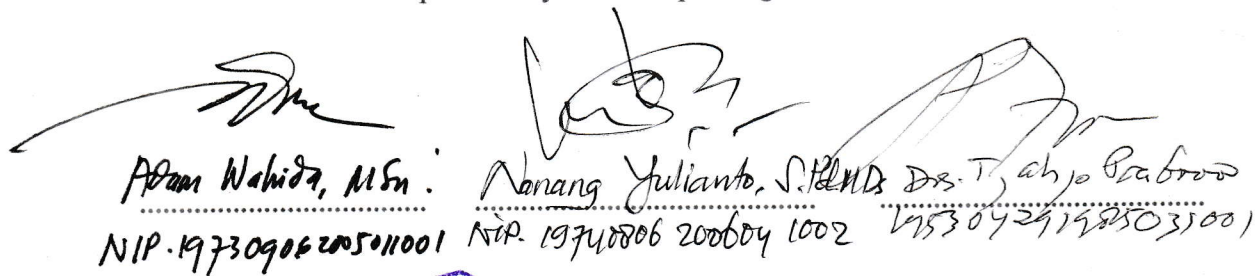 Adam Wahida, MSn.
NIP. 19730906 2005011001
Nanang Yulianto, S.Pd, M.Ds
NIP. 19740806 200604 1002
Drs. Tjahjo Prabowo
195304291985031001